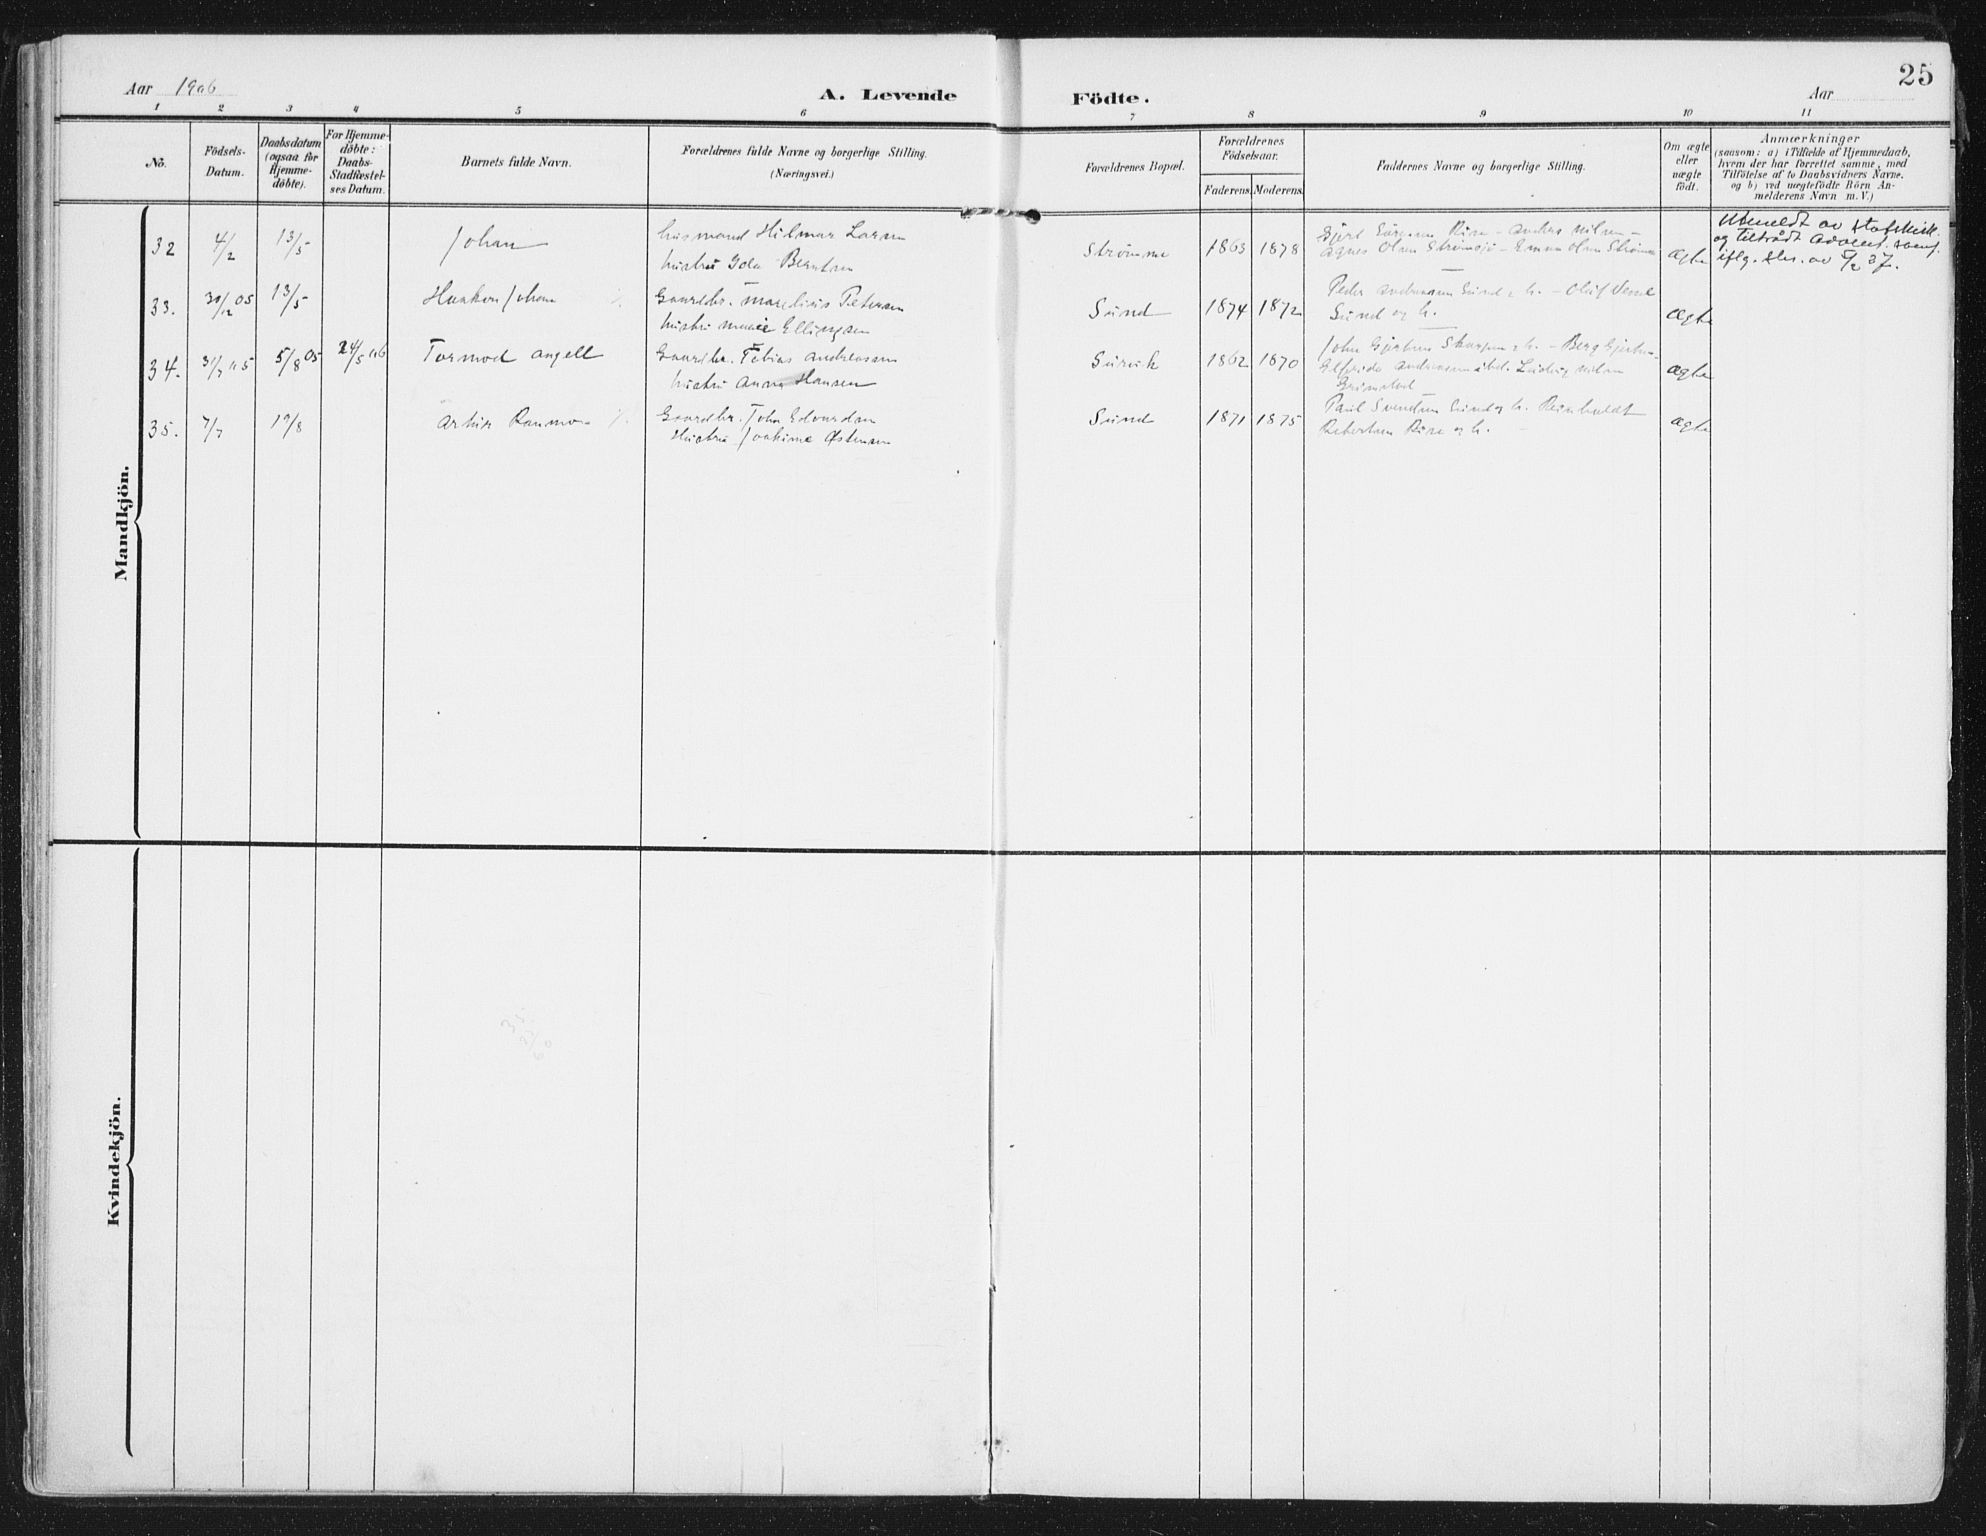 25
Aar 1906
A. Levende Födte.
Aar
1 2 3 4 5 6 7 8 9 10 11
No.
Födsels-
Datum.
Daabsdatum
(ogsaa for
Hjemme-
döbte).
For Hjemme-
döbte:
Daabs-
Stadfæstel-
ses Datum.
Barnets fulde Navn.
Forældrenes fulde Navne og borgerlige Stilling.
(Næringsvei.)
Forældrenes Bopæl.
Forældrenes
Födselsaar.
Faderens. Moderens.
Faddernes Navne og borgerlige Stilling.
Om ægte
eller
uægte
födt.
Anmærkninger
(saasom: a) i Tilfælde af Hjemmedaab,
hvem der har forrettet samme, med
Tilföielse af to Daabsvidners Navne.
og b) ved uægtefödte Börn An-
melderens Navn m. V.)
Mandkjön.
32 4/2 13/5 Johan
husmand Hilmar Larsen
hustru Ida Berntsen
Strømme 1863 1878
Rise - Anders Nilsen -
Agnes Olsen Strømsjö - Emma Olsen Strömme
Ægte
Utmeldt av statskirk.
og tiltrådt Advent. samf.
iflg. av 5/2 37.
33. 30/12 05 13/5 Haakon Johan
Gaardbr. Marelius Petersen
hustru Marie Ellingsen
Sund 1874 1872
Peder Andreassen Sund & h. - Oluf
Sund og h.
Ægte
34. 31/7 05 5/8 05 24/5 06 Tormod Angell
Gaardbr. Tobias Andreassen
hustru Anna Hansen
1862 1870
John & h. - Berg
Elfrida Andreassen Ludvig Nilsen
Grimstad
Ægte
35. 7/7 19/8 Artur
Gaardbr. John Edvardsen
Hustru Joakime Østensen
Sund 1871 1875
Paul Svendsen Sund og h. Reinholdt
Robertsen Rise og h.
Ægte
Kvindekjön.
35.